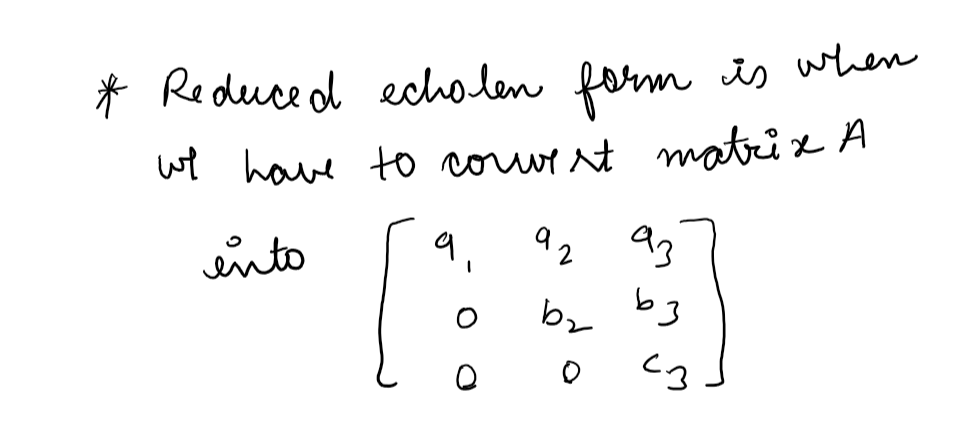 * Reduced echolen form is when
we have to convert matrix A
into [ a₁ a₂ a₃
0 b₂ b₃
0 0 c₃ ]